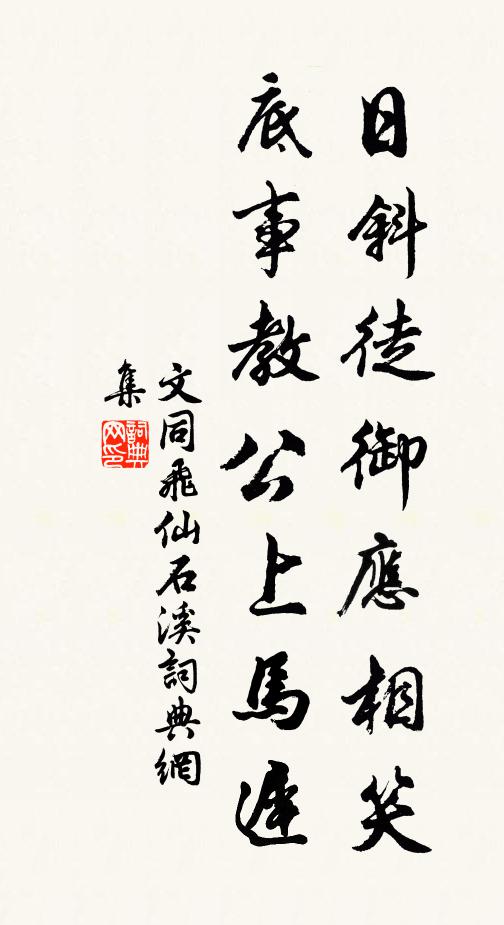 日斜徒御應相笑
底事教公上馬遲
文同飛仙石溪詞典網
集
詞典
网印